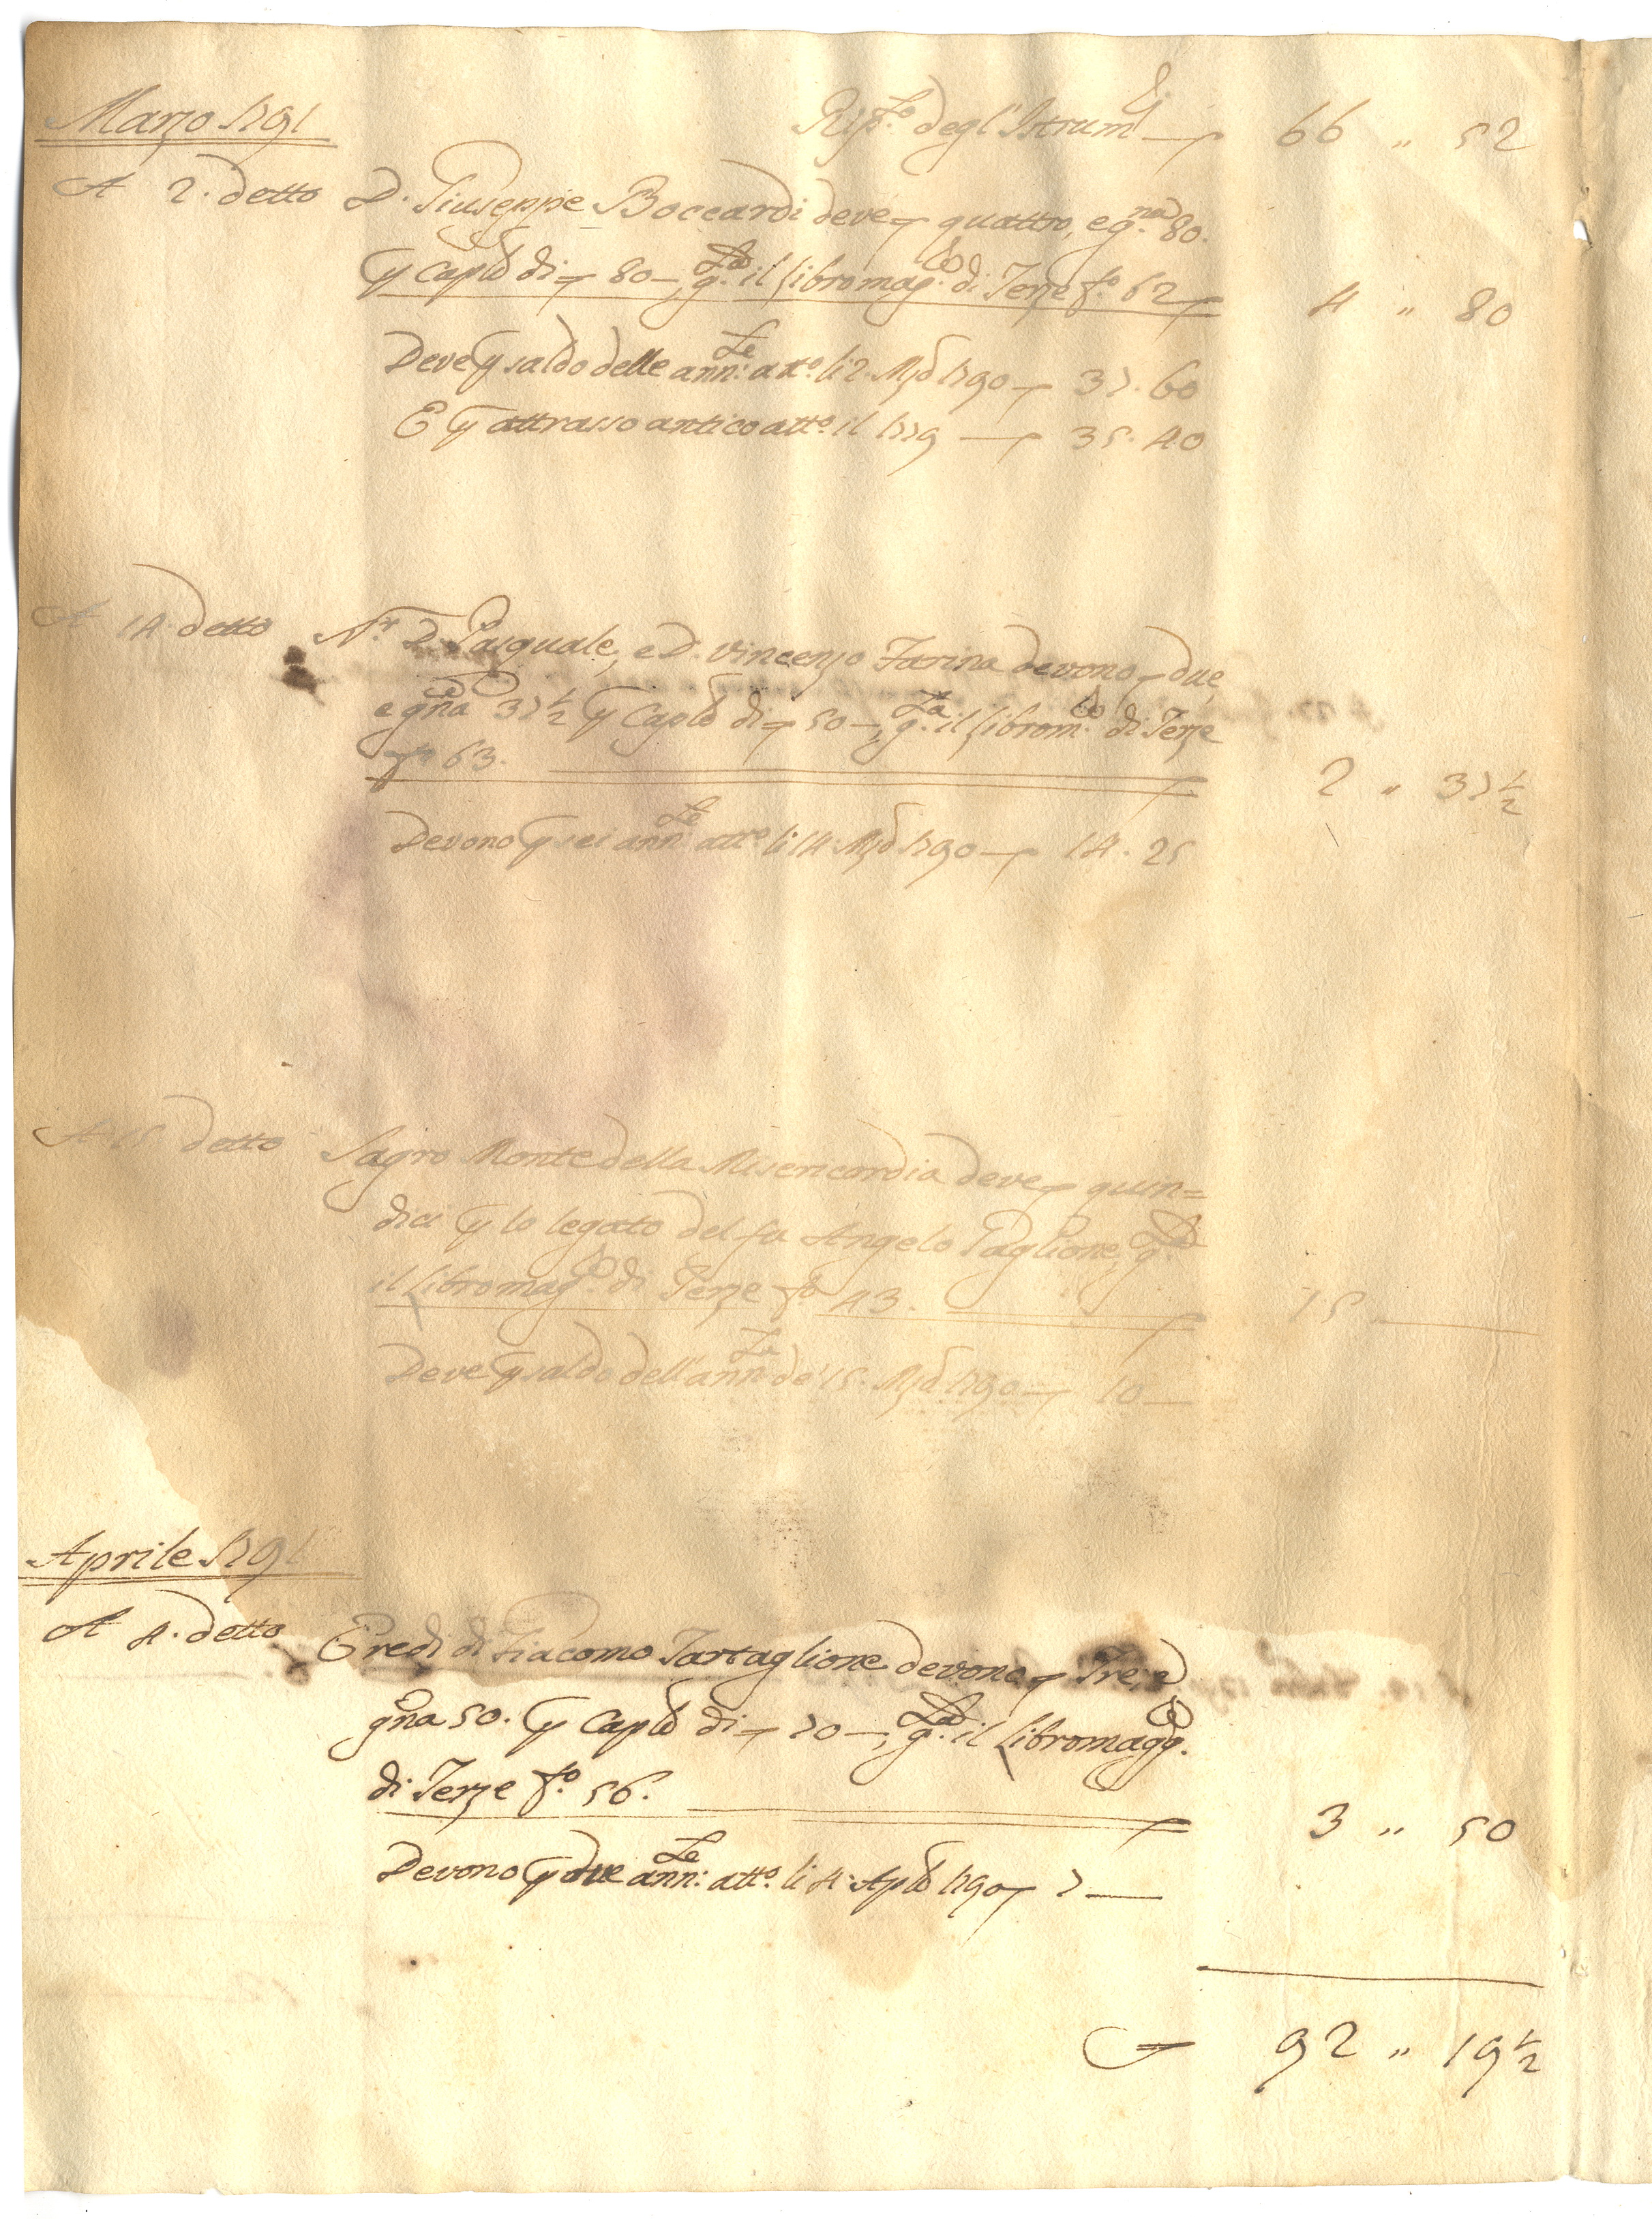 Marzo 1791
Rip.to degl'Istrum.ti — 66 " 52
A 2. detto D. Giuseppe Boccardi deve quattro, e g.na 80.
p Cap.le di 80 —, g.ta il libro mag.re di Terze f.o 62 4 " 80
Deve p saldo delle ann.te att.o li 2. Mzo 1790 — 37. 60
E p attrasso antico att.o il 1779 — 35. 40
A 14. detto N.r D. Pasquale, e D. Vincenzo Farina devono due,
e g.na 37 1/2 p Cap.le di 50 —, g.ta il libro m.re di Terze
f.o 63. 2 " 37 1/2
Devono p sei ann.te att.o li 14. Mzo 1790 — 14. 25
A 15 detto Sagro Monte della Misericordia deve quin=
dici p lo legato del fu Angelo Paglione, g.ta
il libro mag.re di Terze f.o 43. 15 —
Deve p saldo dell'ann.ta de' 15. Mzo 1790 — 10 —
Aprile 1791
A 4. detto Eredi di Giacomo Tartaglione devono Tre, e
g.na 50. p Cap.le di 70 —, g.ta il libro magg.re
di Terze f.o 56. 3 " 50
Devono p due ann.te att.o li 4. Aple 1790 7 —
92 " 19 1/2